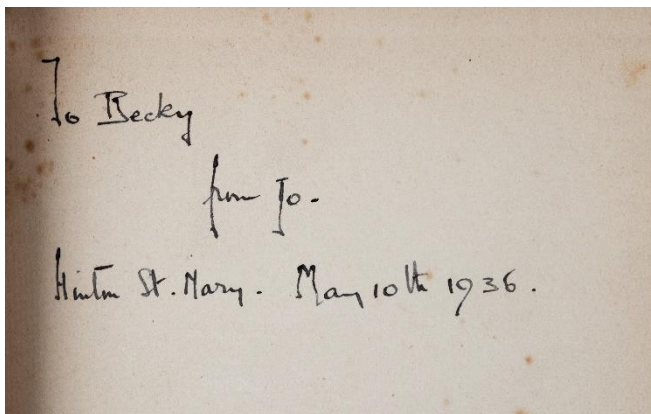 To Becky
from Jo.
Hinton St. Mary. May 10th 1936.